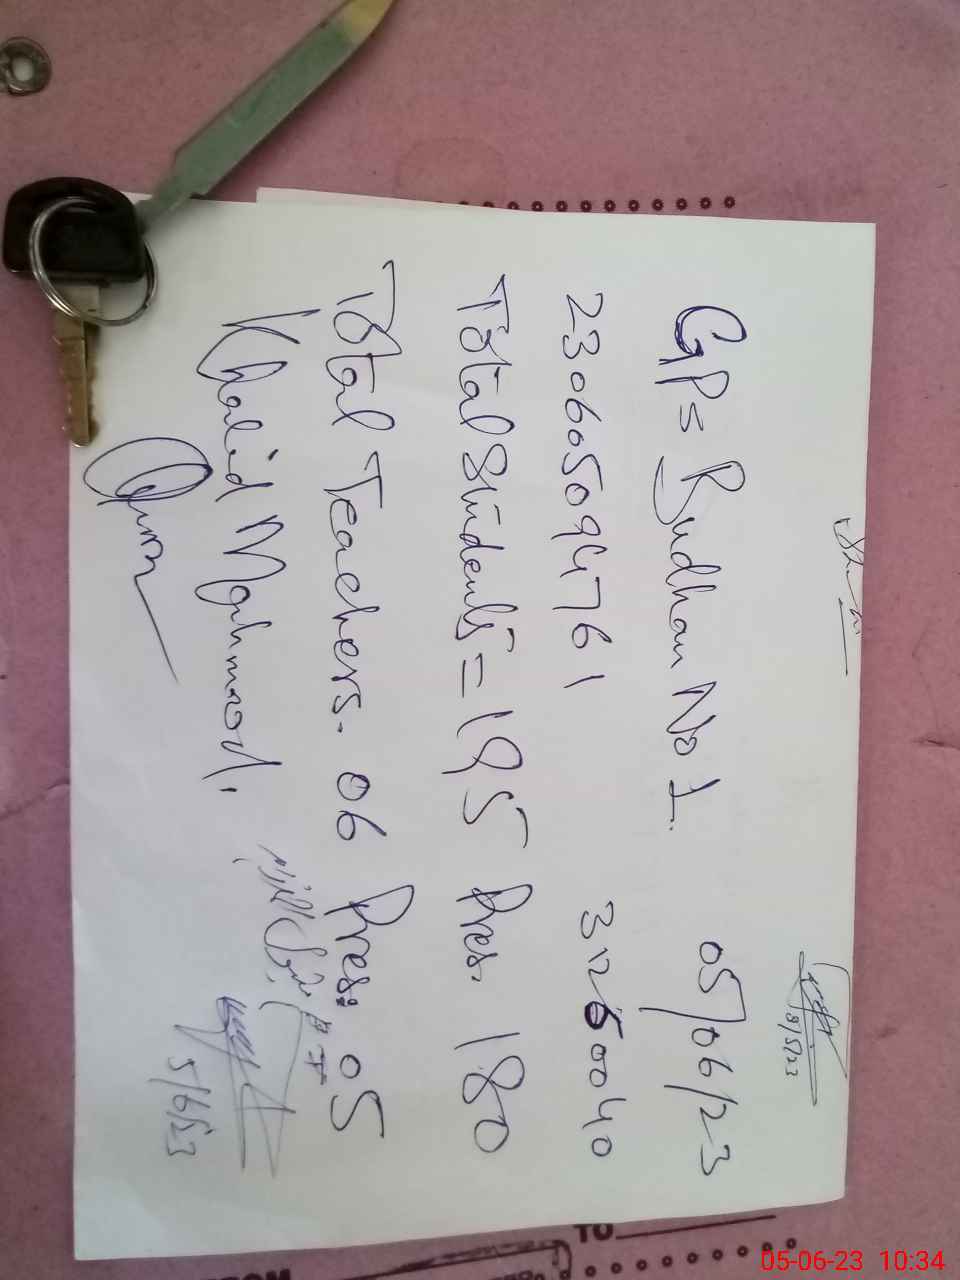 GP= Budhan No 1. 05/06/23
2306050994761 312500040
Total Students = 195 Pres. 180
Total Teachers. 06 Pres: 05
Khalid Mahmood.
5/6/23
TO
05-06-23 10:34